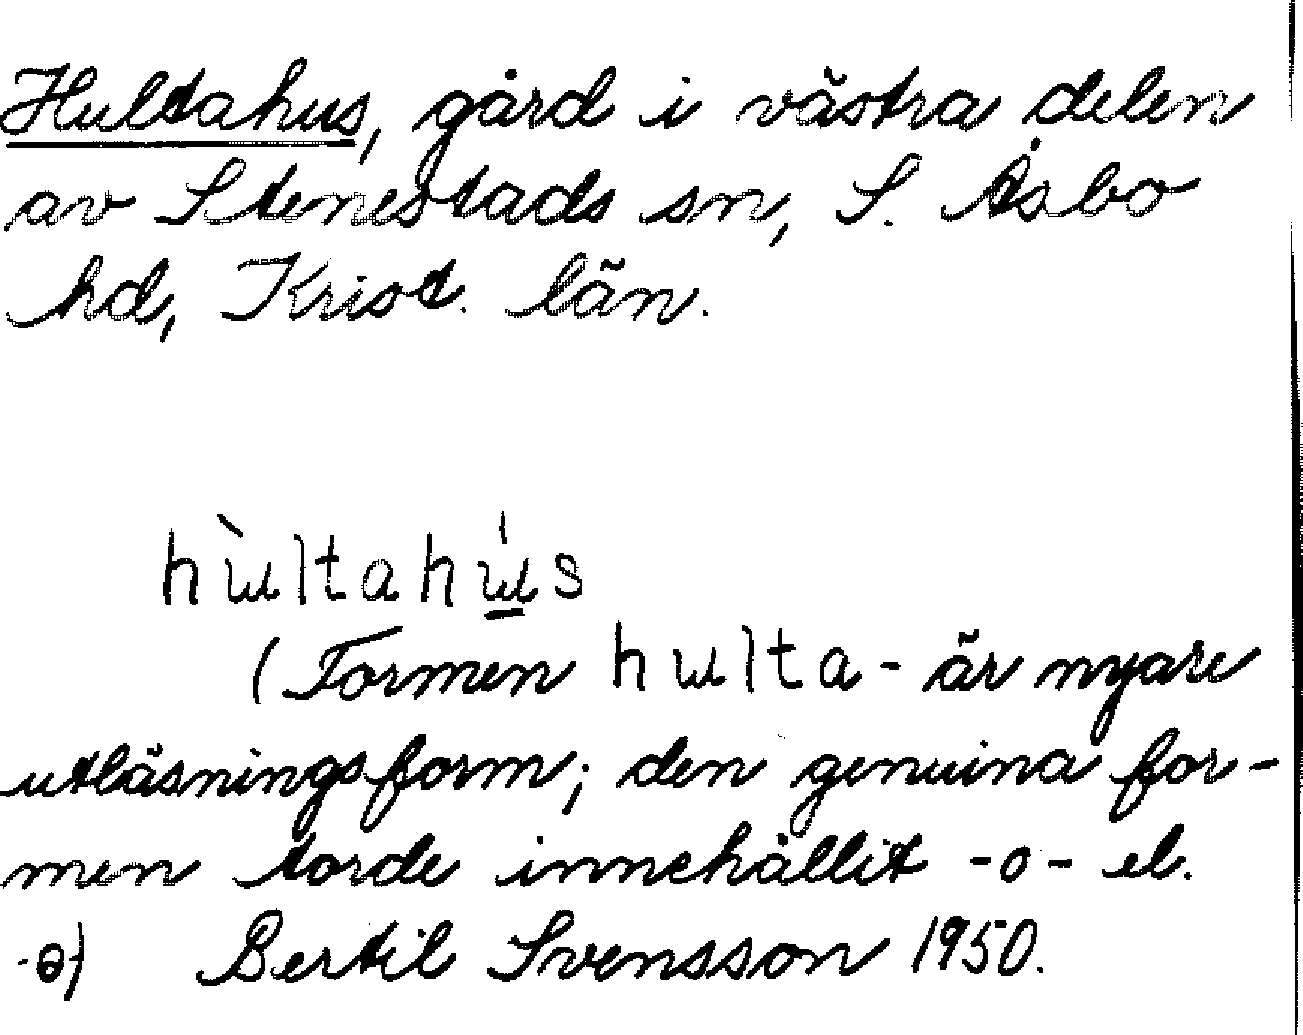 Hultahus, gård i västra delen
av Stenestads sn, S. Åsbo
hd, Krist. län.
hɯ̀ltahɯ̲́s
(Formen hɯlta- är nyare
utläsningsform; den genuina for-
men torde innehållit -o- el.
-ɵ-) Bertil Svensson 1950.